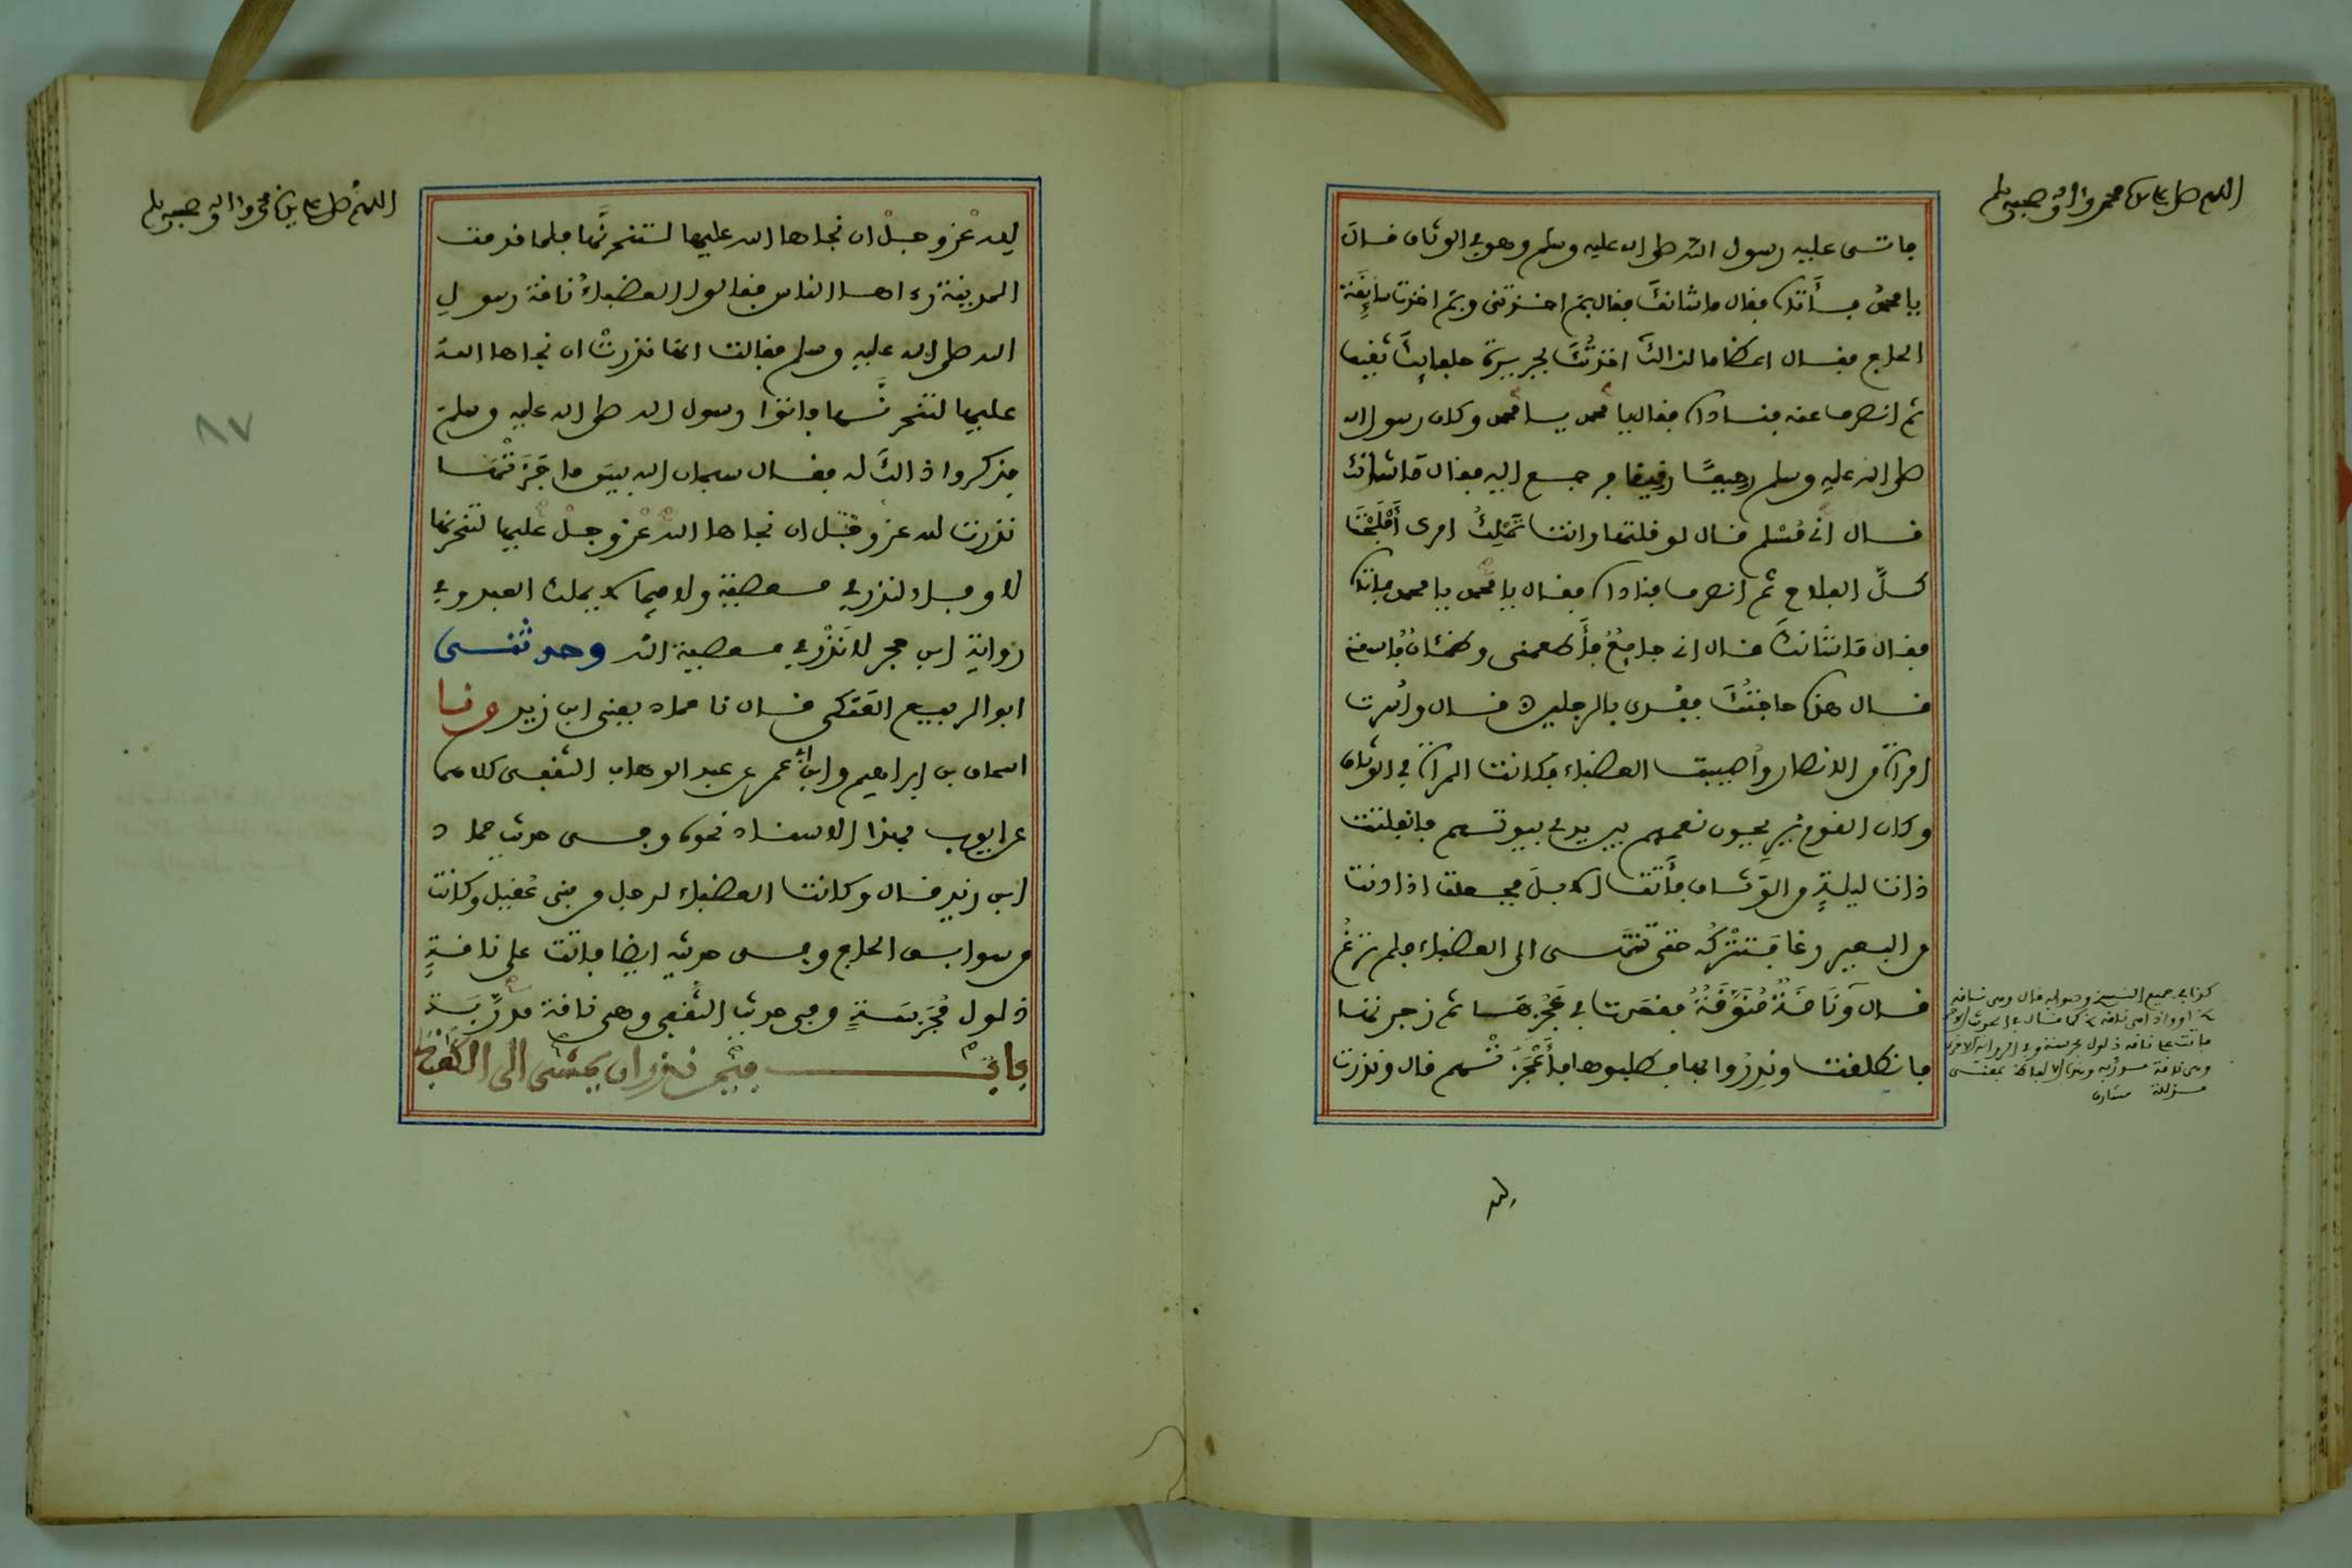 اللهم صل على سيدنا محمد واله وصحبه وسلم
فاتى عليه رسول الله صلى الله عليه وسلم وهو في الوثاق قال
يا محمد فأتاه فقال ما شانك فقال بم اخذتني وبم اخذت سابقة
الحاج فقال اعظاما لذالك اخذتك بجريرة حلفائك ثقيف
ثم انصرف عنه فناداه فقال يا محمد يا محمد وكان رسول الله
صلى الله عليه وسلم رحيمًا رفيقا فرجع اليه فقال ما شانك
قال اني مسلم قال لو قلتها وانت تملك امرك أفلحت
كلَّ الفلاح ثم انصرف فناداه فقال يا محمد يا محمد فاتاه
فقال ما شانك قال اني جايع فأطعمني وظمئان فاسقني
قال هذه حاجتك ففدي بالرجلين قال وأسرت
امراة من الانصار وأصيبت العضباء فكانت المراة في الوثاق
وكان القوم يريحون نعمهم بين يدي بيوتهم فانفلتت
ذات ليلة من الوثاق فأتت الابل فجعلت اذا دنت
من البعير رغا فتتركه حتى تنتهي الى العضباء فلم ترغ
قال وناقة منوقة فقعدت في عجزها ثم زجرتها
فانطلقت ونذروا بها فطلبوها فأعجزتهم قال ونذرت
لله
كذا في جميع النسخ وصوابه قال وهي ناقة
فاتت على ناقة ذلول مجرسة وفي الرواية الاخرى
وهي ناقة مدربة
مذللة مشارق
اللهم صل على سيدنا محمد واله وصحبه وسلم
لله عز وجل ان نجاها الله عليها لتنحرنها فلما قدمت
المدينة رءاها الناس فقالوا العضباء ناقة رسول
الله صلى الله عليه وسلم فقالت انها نذرت ان نجاها الله
عليها لتنحرنها فاتوا رسول الله صلى الله عليه وسلم
فذكروا ذالك له فقال سبحان الله بيس ما جزتها
نذرت لله عز وجل ان نجاها الله عز وجل عليها لتنحرنها
لا وفاء لنذر في معصية ولا فيما لا يملك العبد وفي
رواية ابن حجر لا نذر في معصية الله وحدثنى
ابو الربيع العتكي قال نا حماد يعني ابن زيد ونا
اسحاق بن ابراهيم وابن أبي عمر عن عبد الوهاب الثقفي كلاهما
عن ايوب بهذا الاسناد نحوه وفي حديث حماد
ابن زيد قال وكانت العضباء لرجل من بني عقيل وكانت
من سوابق الحاج وفي حديثه ايضا فاتت على ناقة
ذلول مجرسة وفي حديث الثقفي وهي ناقة مدربة
باب فيمن نذر ان يمشي الى الكعبة
٨٧